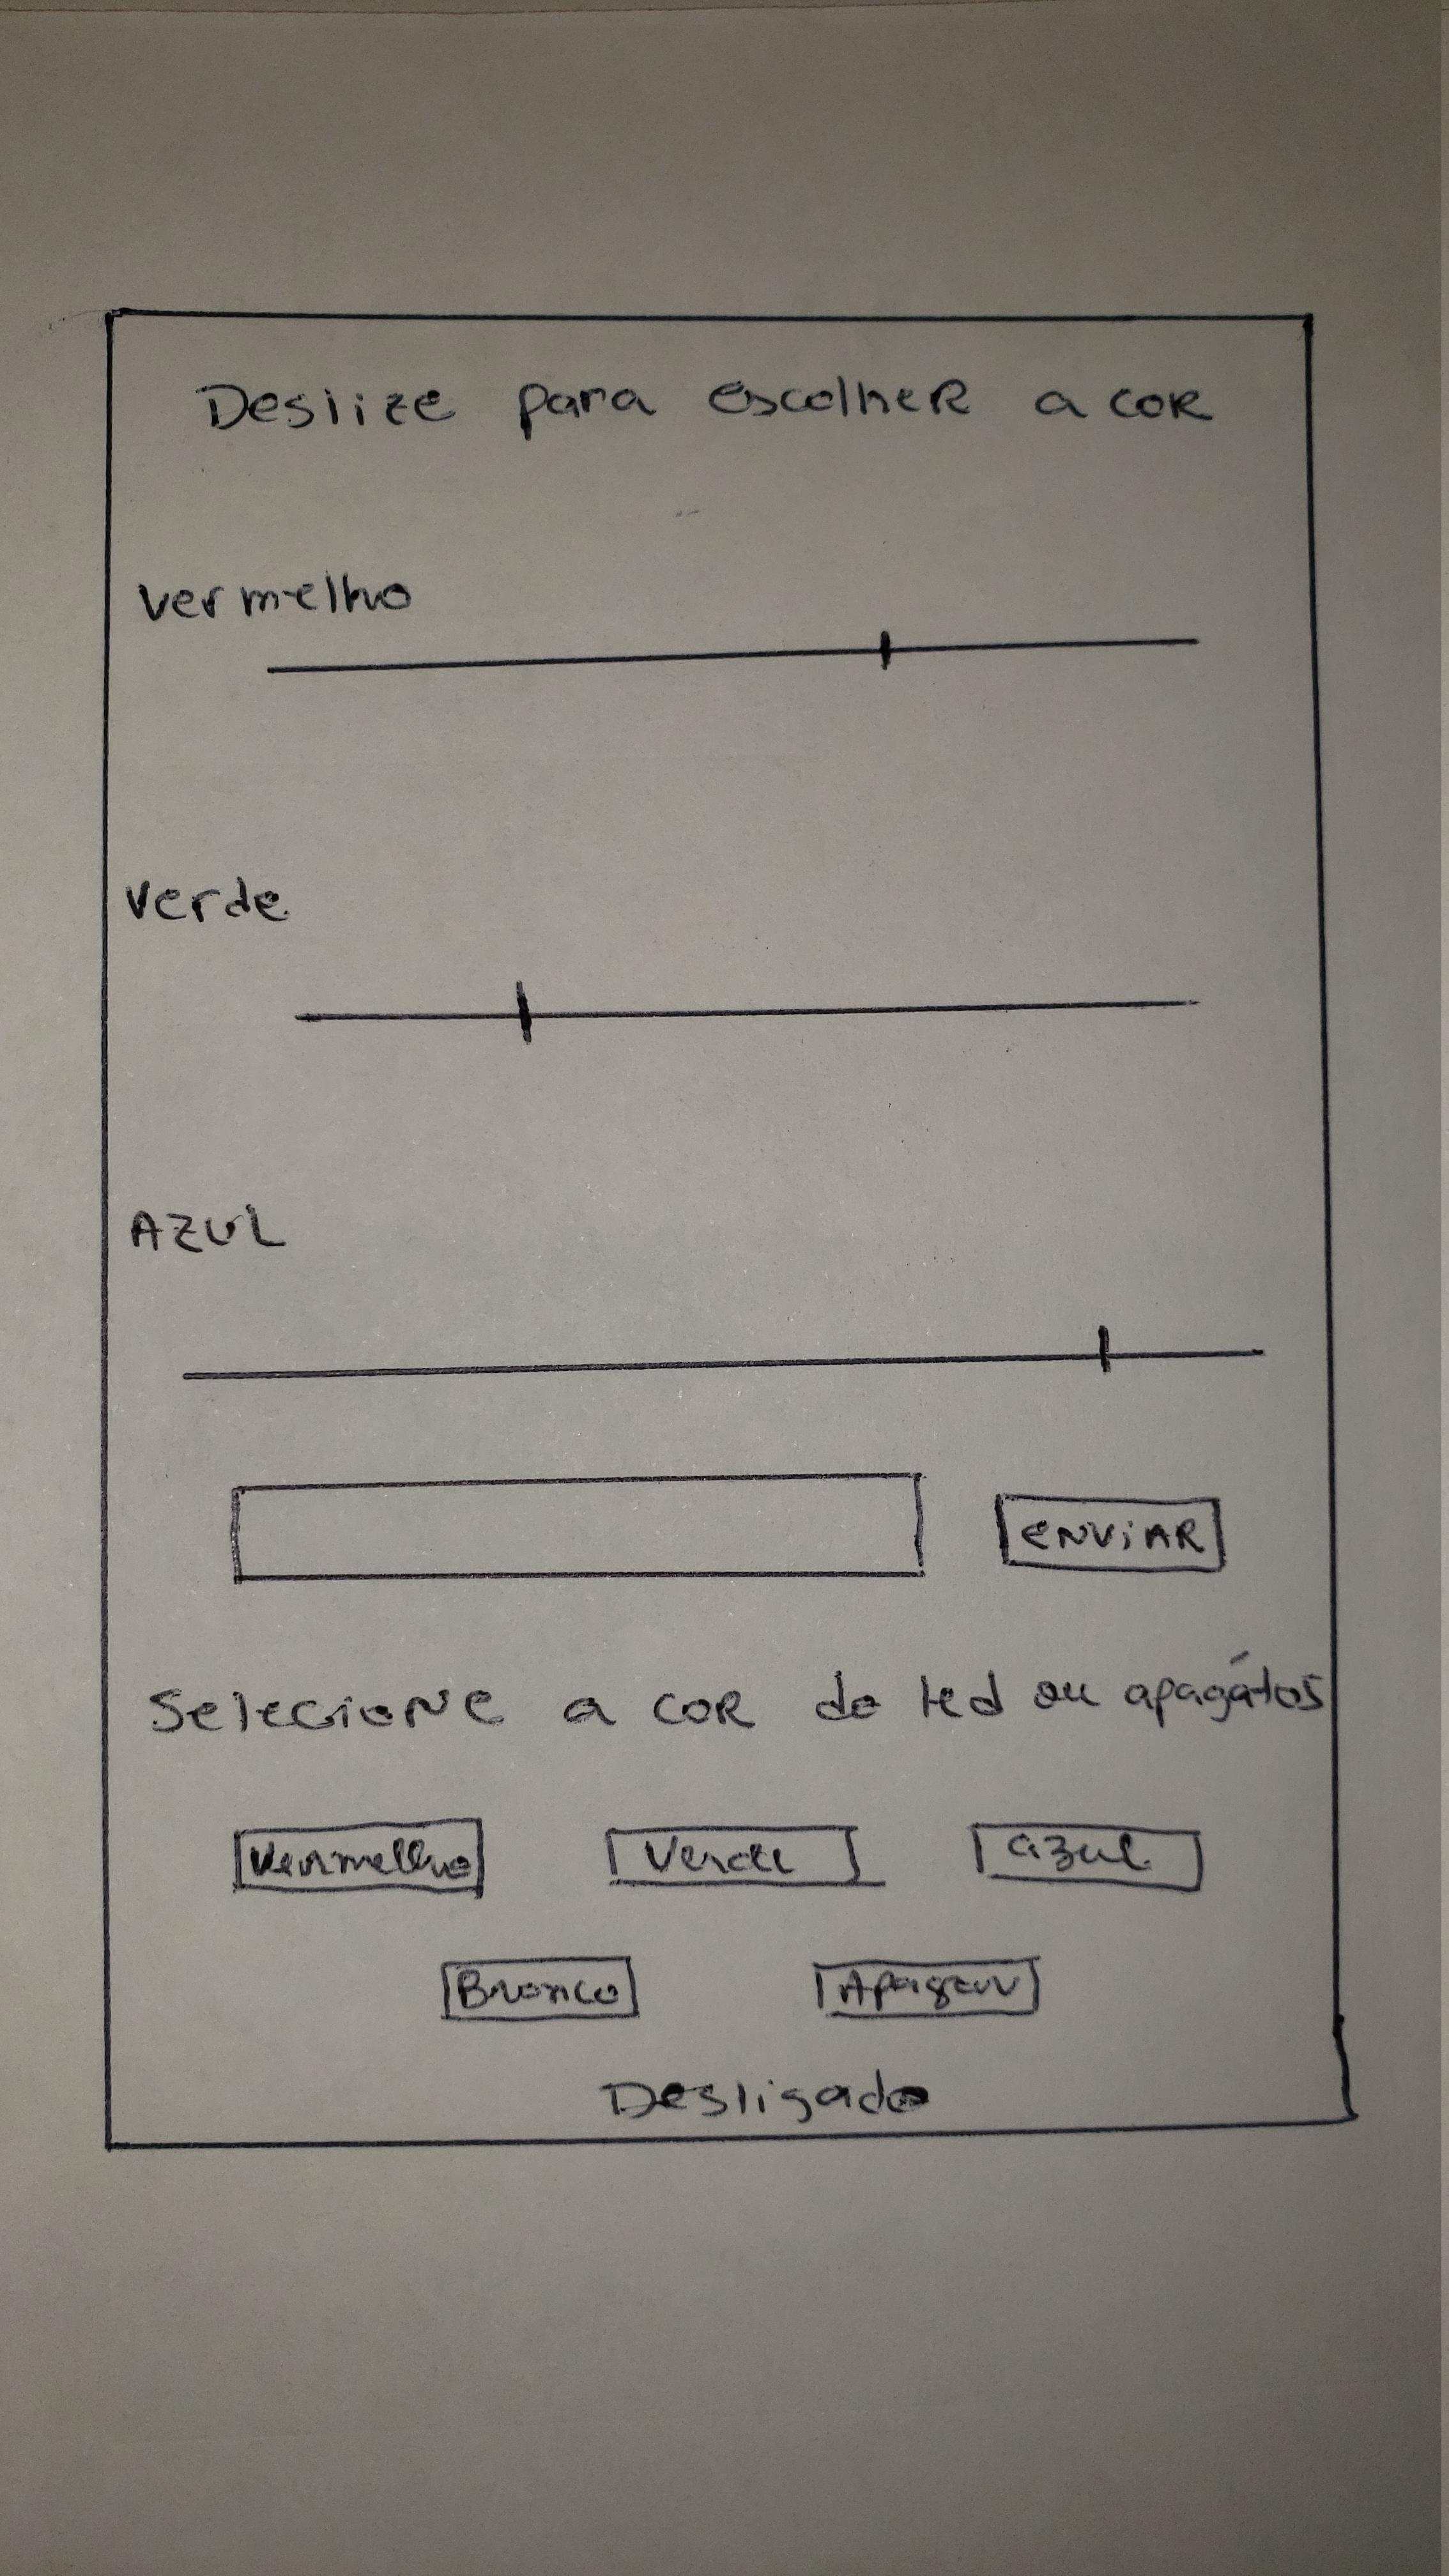 Deslize para escolher a cor
Vermelho
Verde
AZUL
ENVIAR
Selecione a cor do led ou apagátos
Vermelho Verde azul
Branco Apagar
Desligado